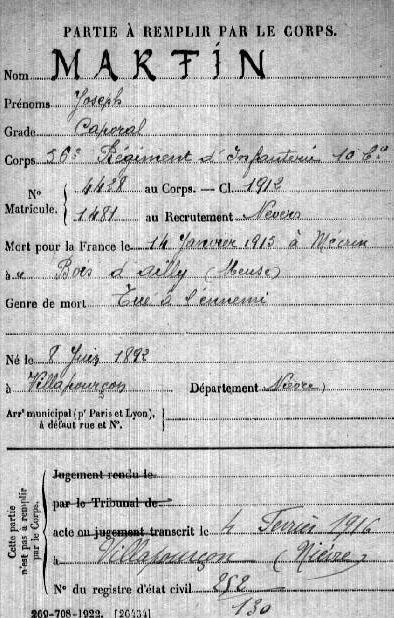 PARTIE À REMPLIR PAR LE CORPS.
Nom MARTIN
Prénoms Joseph
Grade Caporal
Corps 56e Régiment d'Infanterie 10 Cie
No 4428 au Corps. — Cl. 1912
Matricule. 1481 au Recrutement Nevers
Mort pour la France le 14 Janvier 1915 à
à Bois d'ailly (Meuse)
Genre de mort Tué à l'ennemi
Né le 8 Juin 1892
à Villapourçon Département Nièvre
Arrt municipal (pr Paris et Lyon),
à défaut rue et No.
Cette partie
n'est pas à remplir
par le Corps.
Jugement rendu le
par le Tribunal de
acte ou jugement transcrit le 4 Février 1916
à Villapourçon (Nièvre)
No du registre d'état civil 252
130
269-708-1922. [26434]